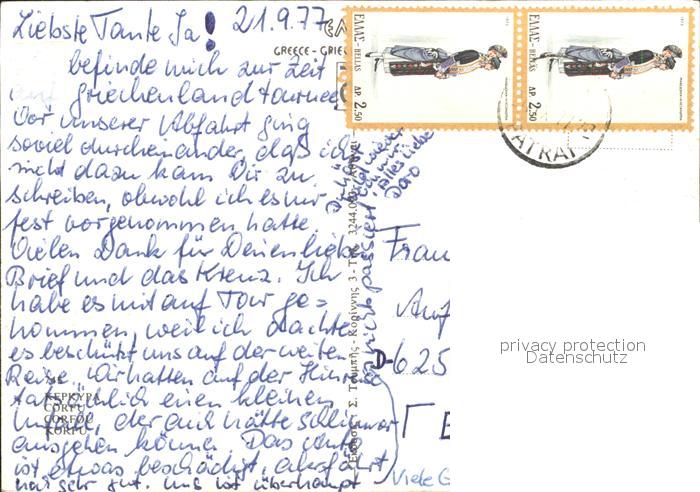 Liebste Tante Ja! 21.9.77
GREECE - GRIE
befinde mich zur Zeit
auf Griechenlandtournee.
Vor unserer Abfahrt ging
soviel durcheinander, daß ich
nicht dazu kam Dir zu
schreiben, obwohl ich es mir
fest vorgenommen hatte.
Vielen Dank für Deinen lieben
Brief und das Kreuz. Ich
habe es mit auf Tour ge=
nommen, weil ich dachte
es beschützt uns auf der weiten
Reise. Wir hatten auf der Hinreise
tatsächlich einen kleinen
Unfall, der auch hätte schlimmer
ausgehen können. Das Auto
ist etwas beschädigt, aber fährt
noch sehr gut. Uns ist überhaupt
nichts passiert
bald wieder
von mir
Alles Liebe
Dodo
ΚΕΡΚΥΡΑ
CORFU
CORFOU
KORFU
Σ. Τουμπής - Κορίννης 3 - Τηλ. 3244.000
ΕΛΛΑΣ - HELLAS
ΔΡ 2.50
ΕΛΛΑΣ - HELLAS
ΔΡ 2.50
PATRAI
Frau
D-625
Viele G
privacy protection
Datenschutz